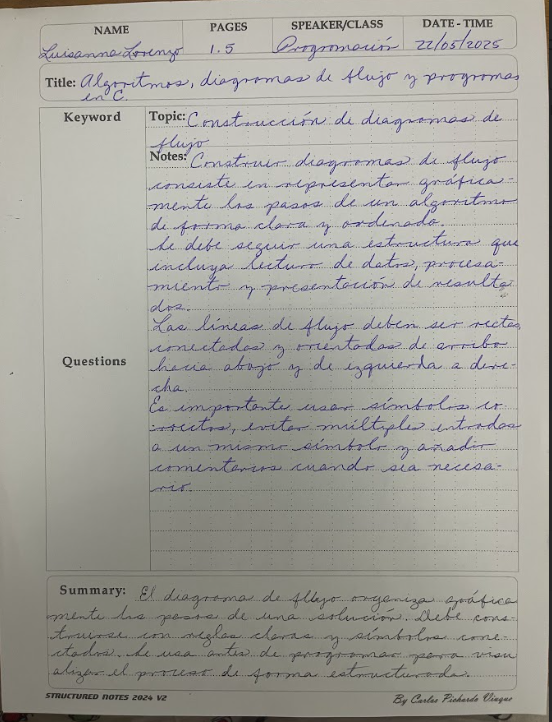 NAME PAGES SPEAKER/CLASS DATE - TIME
Luisanna Lorenzo 1.5 Programación 22/05/2025
Title: Algoritmos, diagramas de flujo y programas
en C.
Keyword
Topic: Construcción de diagramas de
flujo
Notes: Construir diagramas de flujo
consiste en representar gráfica-
mente los pasos de un algoritmo
de forma clara y ordenada.
Se debe seguir una estructura que
incluya lectura de datos, procesa-
miento y presentación de resulta
dos.
Las líneas de flujo deben ser rectas,
conectadas y orientadas de arriba
Questions
hacia abajo y de izquierda a dere-
cha.
Es importante usar símbolos co
rrectos, evitar múltiples entradas
a un mismo símbolo y añadir
comentarios cuando sea necesa-
rio.
Summary: El diagrama de flujo organiza gráfica
mente los pasos de una solución. Debe cons-
truirse con reglas claras y símbolos cone-
ctados. Se usa antes de programar para visu
alizar el proceso de forma estructurada.
STRUCTURED NOTES 2024 V2 By Carlos Pichardo Viuque